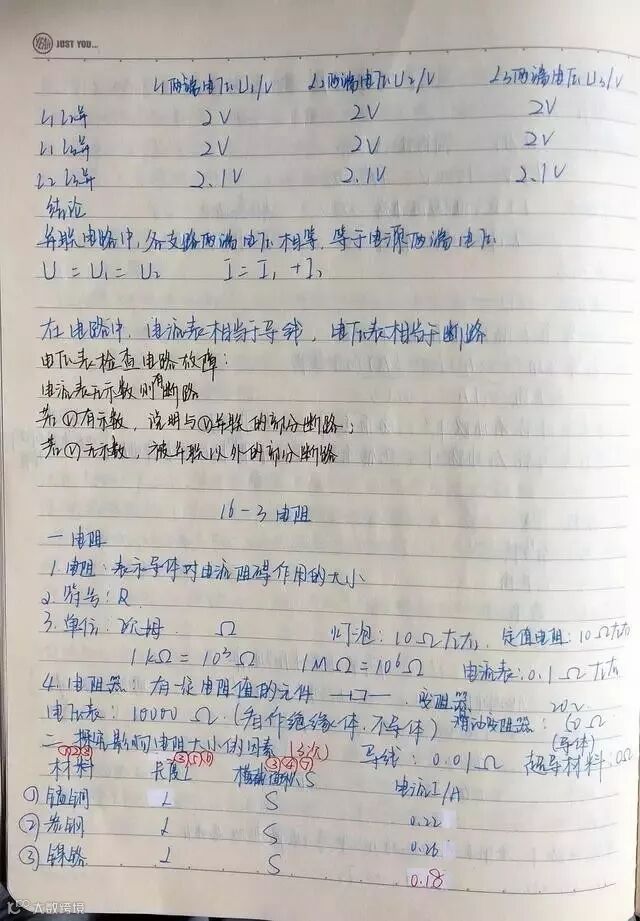 YEAH JUST YOU...
L1两端电压U1/V L2两端电压U2/V L3两端电压U3/V
L1 L2并 2V 2V 2V
L1 L3并 2V 2V 2V
L2 L3并 2.1V 2.1V 2.1V
结论
并联电路中,各支路两端电压相等,等于电源两端电压
U = U1 = U2 I = I1 + I2
在电路中,电流表相当于导线,电压表相当于断路
电压表检查电路故障:
电流表无示数则有断路
若Ⓥ有示数,说明与Ⓥ并联的部分断路;
若Ⓥ无示数,被并联以外的部分断路
16-3 电阻
一 电阻
1.电阻:表示导体对电流阻碍作用的大小
2.符号:R
3.单位:欧姆 Ω 灯泡:10Ω左右 定值电阻:10Ω左右
1kΩ=10³Ω 1MΩ=10⁶Ω 电流表:0.1Ω左右
4.电阻器:有一定电阻值的元件 变阻器 20Ω
电压表:10000Ω.(看作绝缘体,不导体) 滑动变阻器:50Ω
二、探究影响电阻大小的因素 导线:0.01Ω (导体) 超导材料:0Ω
①②③ ③⑤⑥ ③④⑦
材料 长度L 横截面积S 电流I/A
①锰铜 L S 0.22
② L S 0.26
③镍铬 L S 0.18
大数跨境